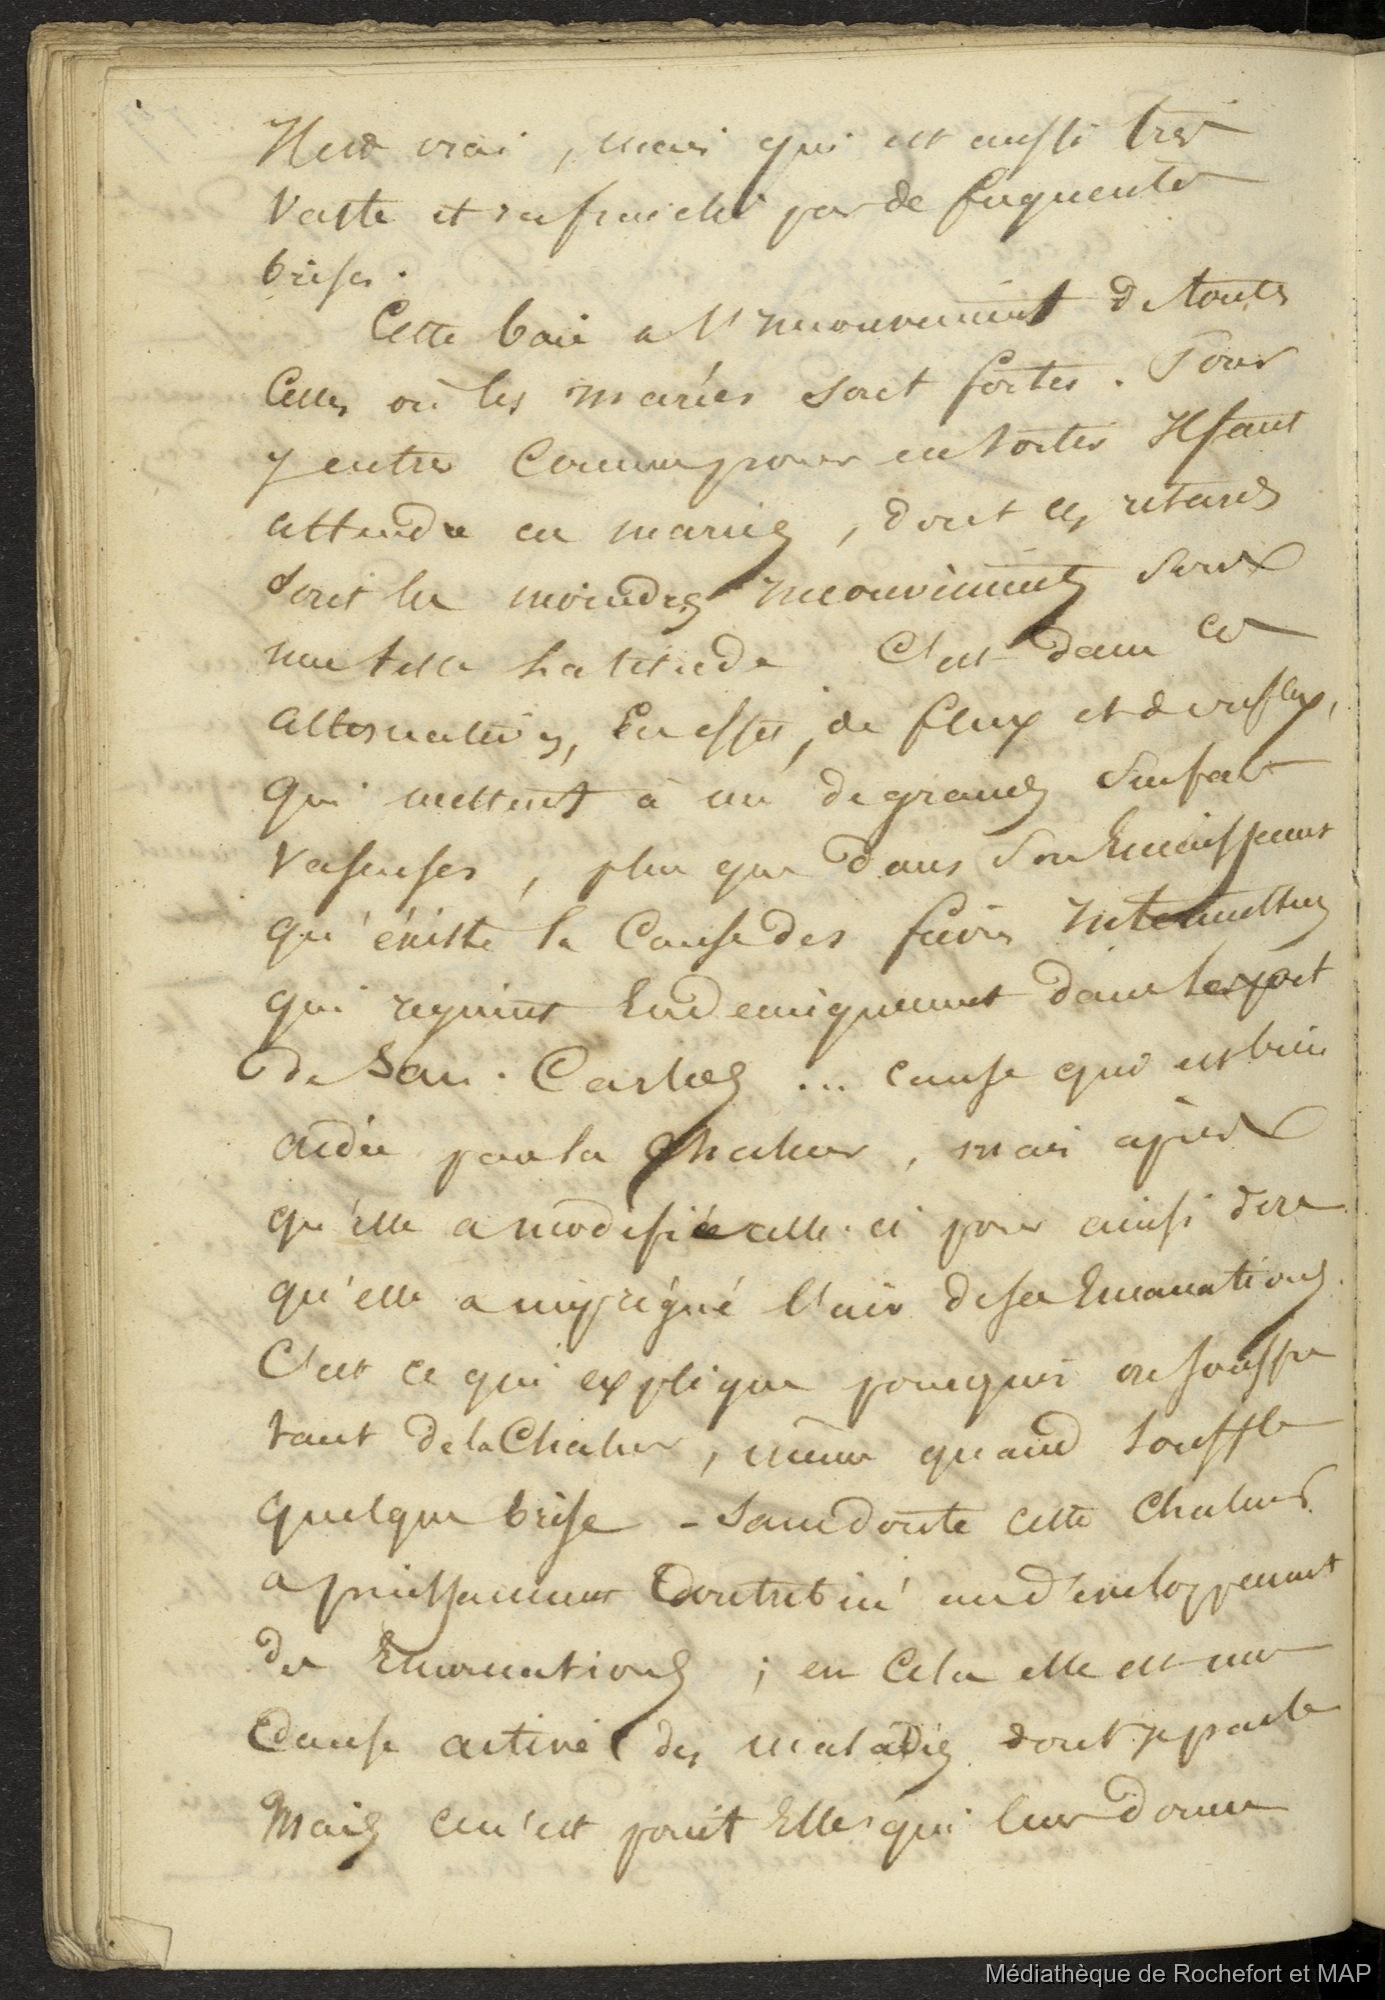 Il est vrai, mais qui est aussi très
vaste et rafraichi par de fréquentes
brises.
Cette baie a l'inconvenient de toutes
celles où les marées sont fortes. Pour
y entrer comme pour en sortir Il faut
attendre ces marées, dont ces retards
sont les moindres inconvénients sous
une telle Latitude C'est dans ces
alternatives, En effet, de flux et de reflux,
qui mettent à nu de grandes surfaces
vaseuses, plus que dans son Encaissement
qu'éxiste la Cause des fièvres Intermittentes
qui regnent Endemiquement dans le port
de San-Carlos ... cause qui est bien
aidée par la Chaleur, mais après
qu'elle a modifiée celle-ci pour ainsi dire
qu'elle a imprégné l'air de ses Emanations.
C'est ce qui explique pourquoi on souffre
tant de la Chaleur, même quand souffle
quelque brise - Sans doute cette Chaleur
a puissamment Contribué au développement
des Emanations ; en Cela elle est une
Cause active des maladies dont je parle
Mais ce n'est point Elle qui leur donne
Médiathèque de Rochefort et MAP